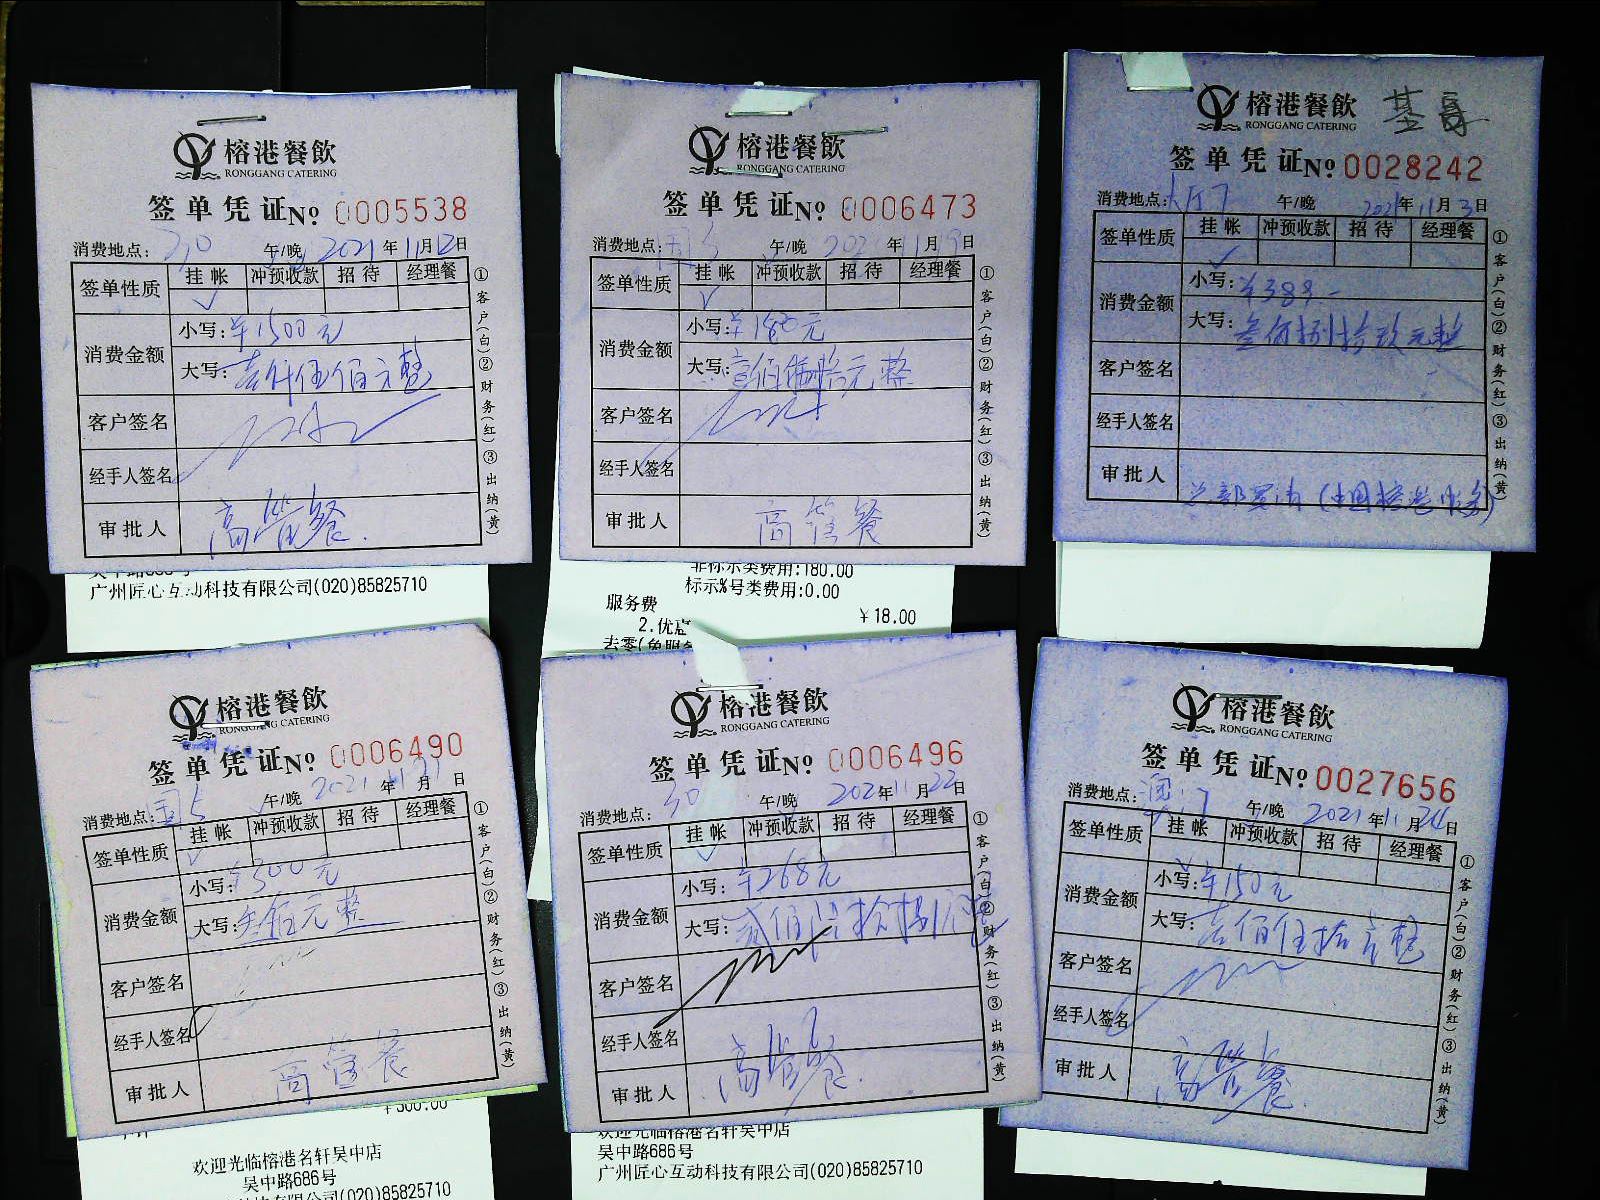 榕港餐飲
RONGGANG CATERING
签单凭证No 0005538
消费地点: 午/晚 2021年11月12日
签单性质 挂帐 冲预收款 招待 经理餐
✓
消费金额 小写:¥1500元
大写:壹仟伍佰元整
客户签名
经手人签名
审批人 高管餐.
①客户(白)②财务(红)③出纳(黄)
广州匠心互动科技有限公司(020)85825710
榕港餐飲
RONGGANG CATERING
签单凭证No 0006473
消费地点: 午/晚 2021年11月19日
签单性质 挂帐 冲预收款 招待 经理餐
✓
消费金额 小写:¥180元
大写:壹佰捌拾元整
客户签名
经手人签名
审批人 高管餐
①客户(白)②财务(红)③出纳(黄)
非标示类费用:180.00
标示%号类费用:0.00
服务费
¥18.00
2.优惠
去零(免服务
榕港餐飲 基哥
RONGGANG CATERING
签单凭证No 0028242
消费地点:大厅7 午/晚 2021年11月3日
签单性质 挂帐 冲预收款 招待 经理餐
✓
消费金额 小写:¥389.-
大写:叁佰捌拾玖元整
客户签名
经手人签名
审批人
①客户(白)②财务(红)③出纳(黄)
榕港餐飲
RONGGANG CATERING
签单凭证No 0006490
消费地点:国5 午/晚 2021年11月21日
签单性质 挂帐 冲预收款 招待 经理餐
✓
消费金额 小写:¥300元
大写:叁佰元整
客户签名
经手人签名
审批人 高管餐
①客户(白)②财务(红)③出纳(黄)
¥300.00
欢迎光临榕港名轩吴中店
吴中路686号
榕港餐飲
RONGGANG CATERING
签单凭证No 0006496
消费地点:30 午/晚 2021年11月22日
签单性质 挂帐 冲预收款 招待 经理餐
✓
消费金额 小写:¥268元
大写:贰佰陆拾捌元整
客户签名
经手人签名
审批人 高管餐.
①客户(白)②财务(红)③出纳(黄)
欢迎光临榕港名轩吴中店
吴中路686号
广州匠心互动科技有限公司(020)85825710
榕港餐飲
RONGGANG CATERING
签单凭证No 0027656
消费地点:澳门 午/晚 2021年11月24日
签单性质 挂帐 冲预收款 招待 经理餐
消费金额 小写:¥150元
大写:壹佰伍拾元整
客户签名
经手人签名
审批人 高管餐.
①客户(白)②财务(红)③出纳(黄)